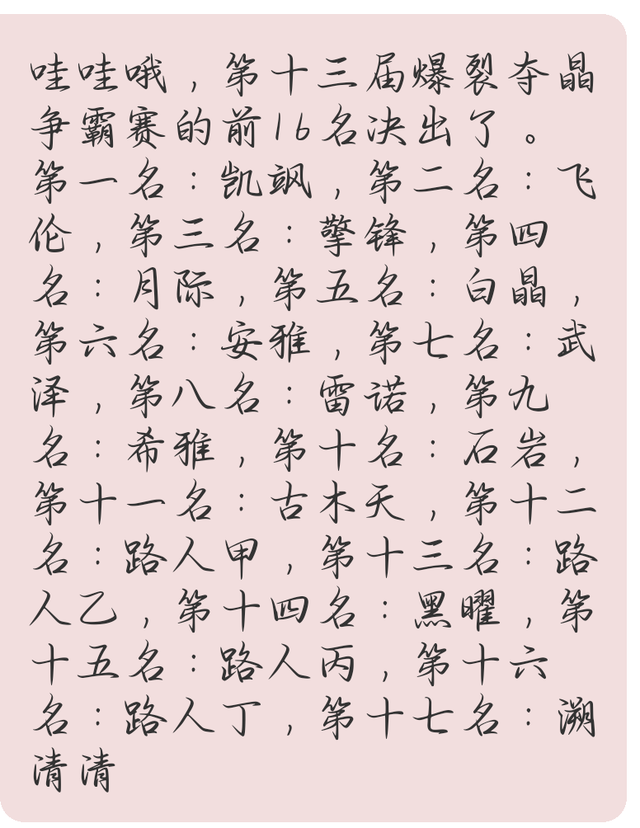 哇哇哦，第十三届爆裂夺晶
争霸赛的前16名决出了。
第一名：凯飒，第二名：飞
伦，第三名：擎锋，第四
名：月际，第五名：白晶，
第六名：安雅，第七名：武
泽，第八名：雷诺，第九
名：希雅，第十名：石岩，
第十一名：古木天，第十二
名：路人甲，第十三名：路
人乙，第十四名：黑曜，第
十五名：路人丙，第十六
名：路人丁，第十七名：溯
清清